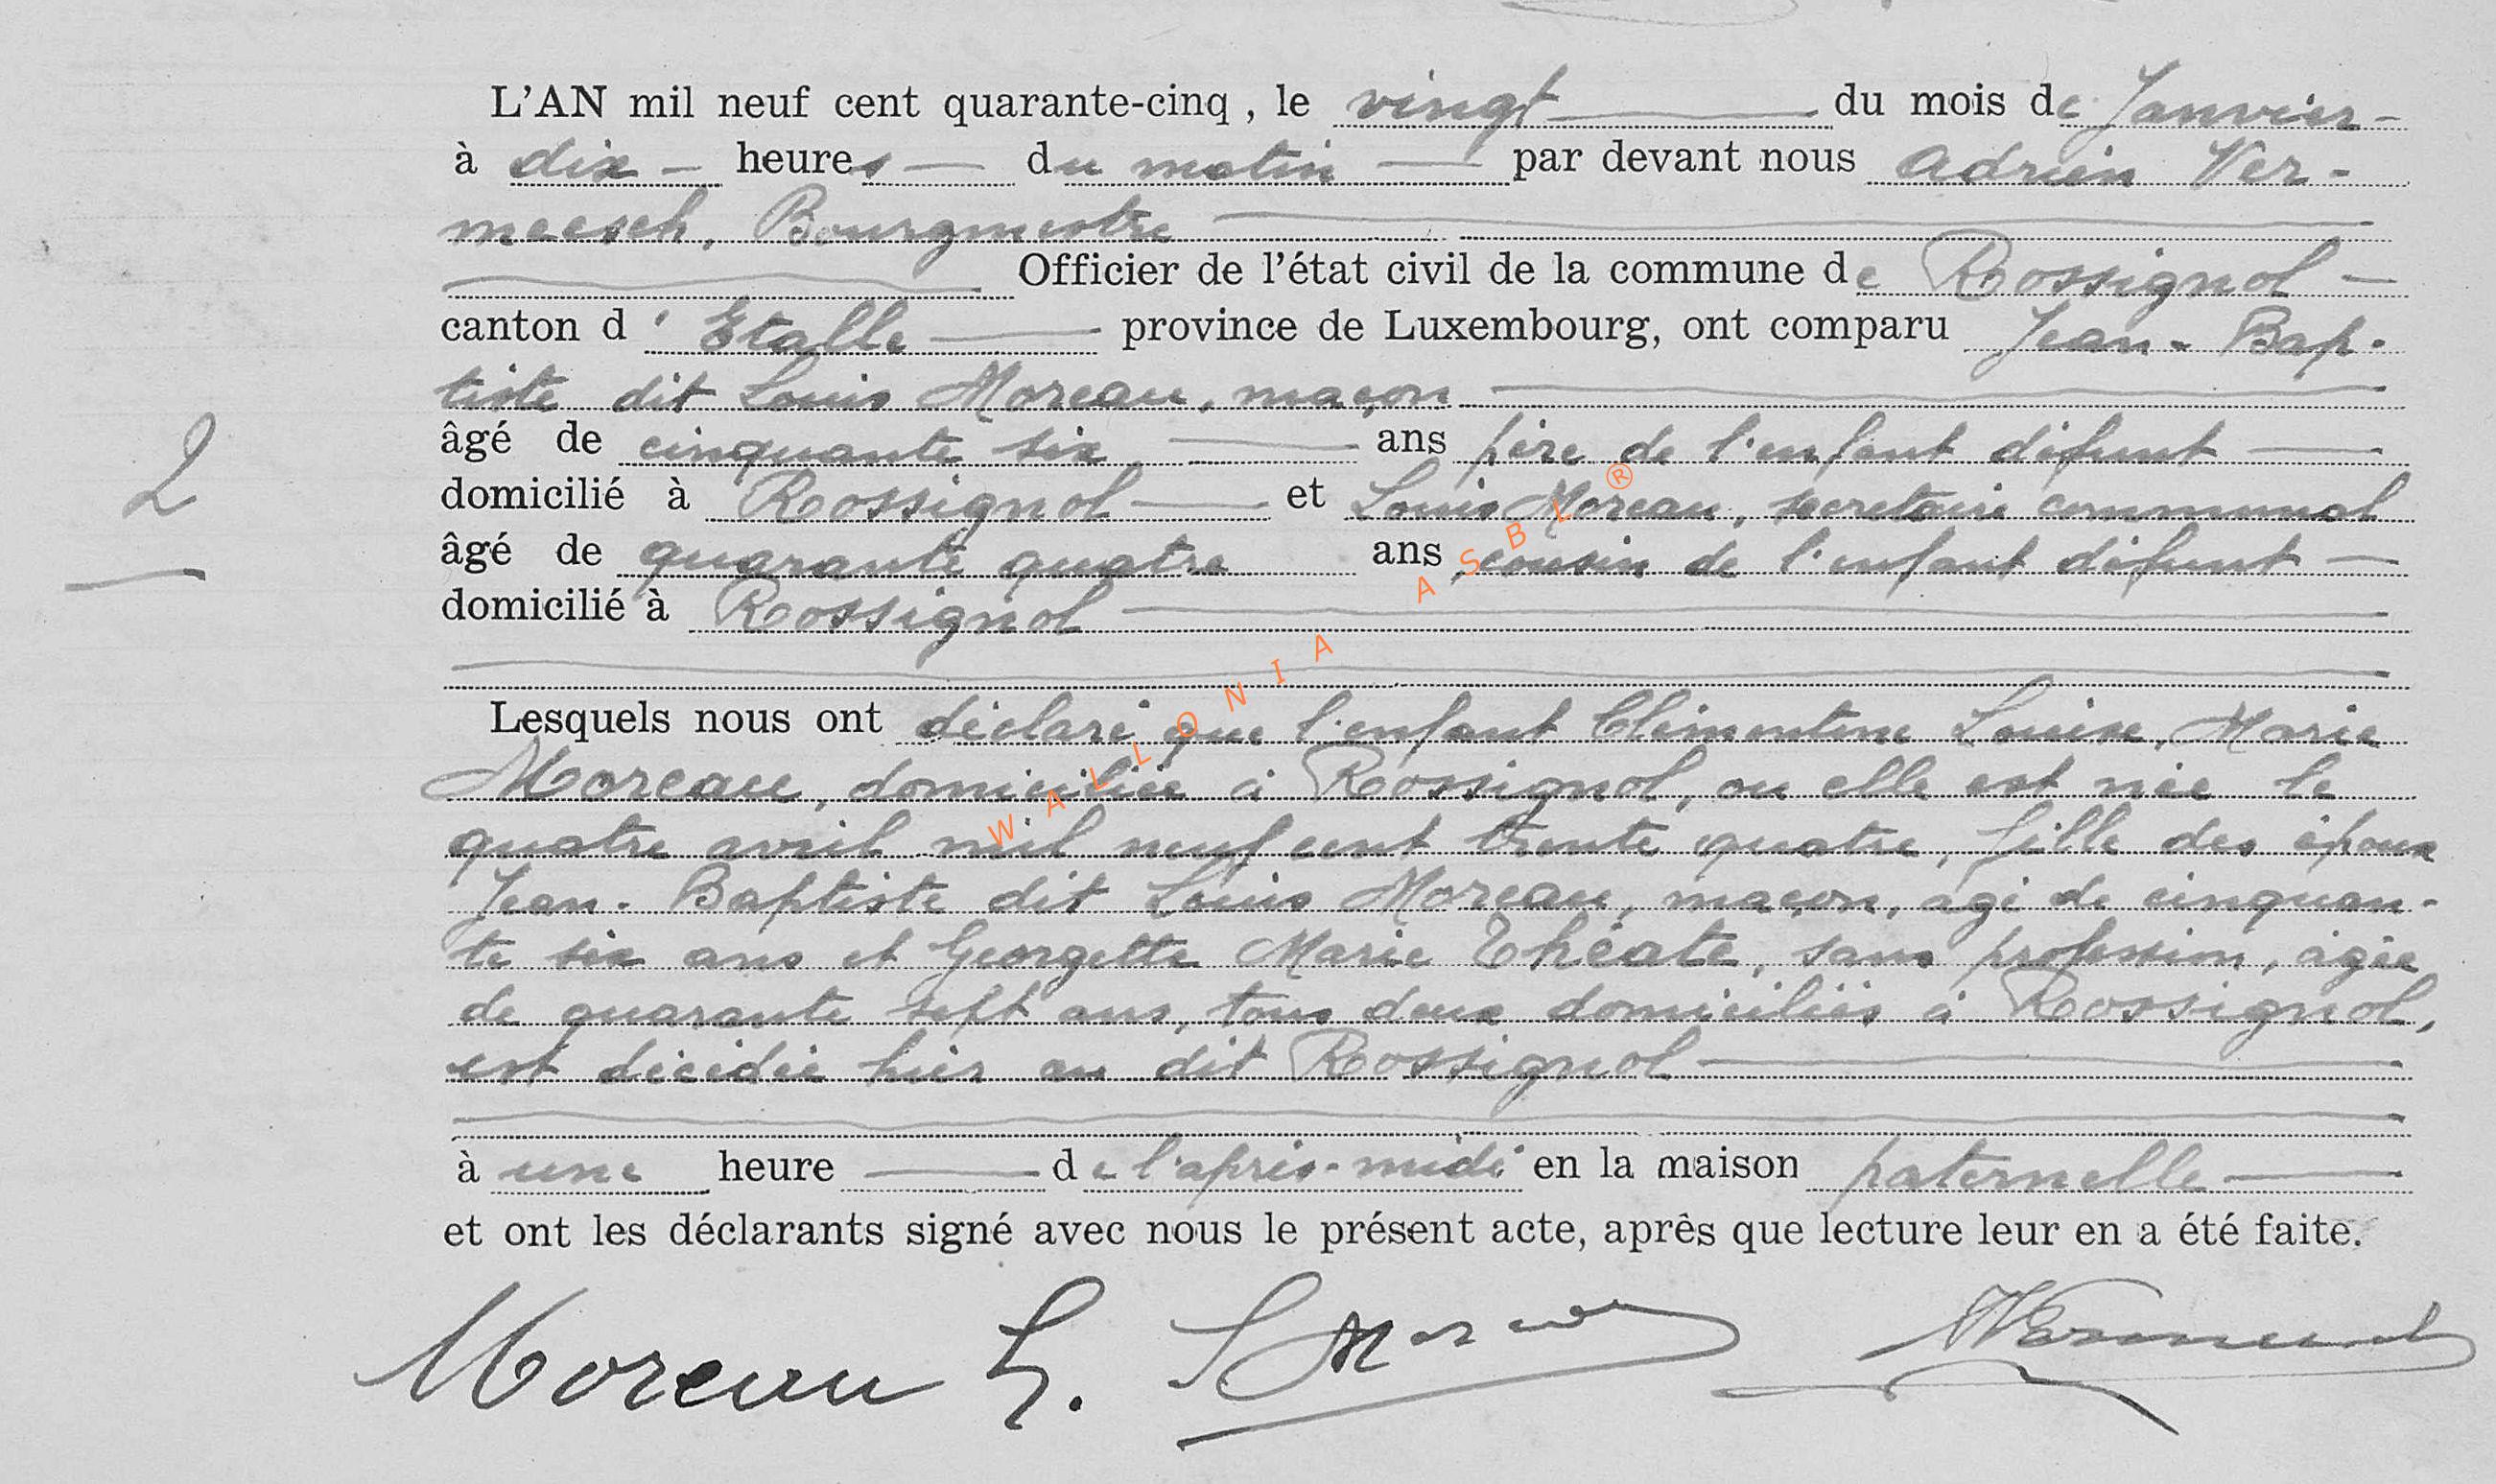 L'AN mil neuf cent quarante-cinq, le vingt du mois de Janvier
à dix heures du matin par devant nous Adrien Ver-
meesch, Bourgmestre
Officier de l'état civil de la commune de Rossignol
canton d'Etalle province de Luxembourg, ont comparu Jean-Bap-
tiste dit Louis Moreau, maçon
âgé de cinquante six ans père de l'enfant défunt
domicilié à Rossignol et Louis Moreau, secretaire communal
âgé de quarante quatre ans, cousin de l'enfant défunt
domicilié à Rossignol
2
Lesquels nous ont déclaré que l'enfant Clémentine Louise, Marie
Moreau, domiciliée à Rossignol, ou elle est née le
quatre avril mil neuf cent trente quatre, fille des époux
Jean-Baptiste dit Louis Moreau, maçon, agé de cinquan-
te six ans et Georgette Marie Théate, sans profession, agée
de quarante sept ans, tous deux domiciliés à Rossignol,
est décédée hier au dit Rossignol
à une heure de l'après-midi en la maison paternelle
et ont les déclarants signé avec nous le présent acte, après que lecture leur en a été faite.
Moreau L. L Moreau AVermeesch
WALLONIA ASBL ®